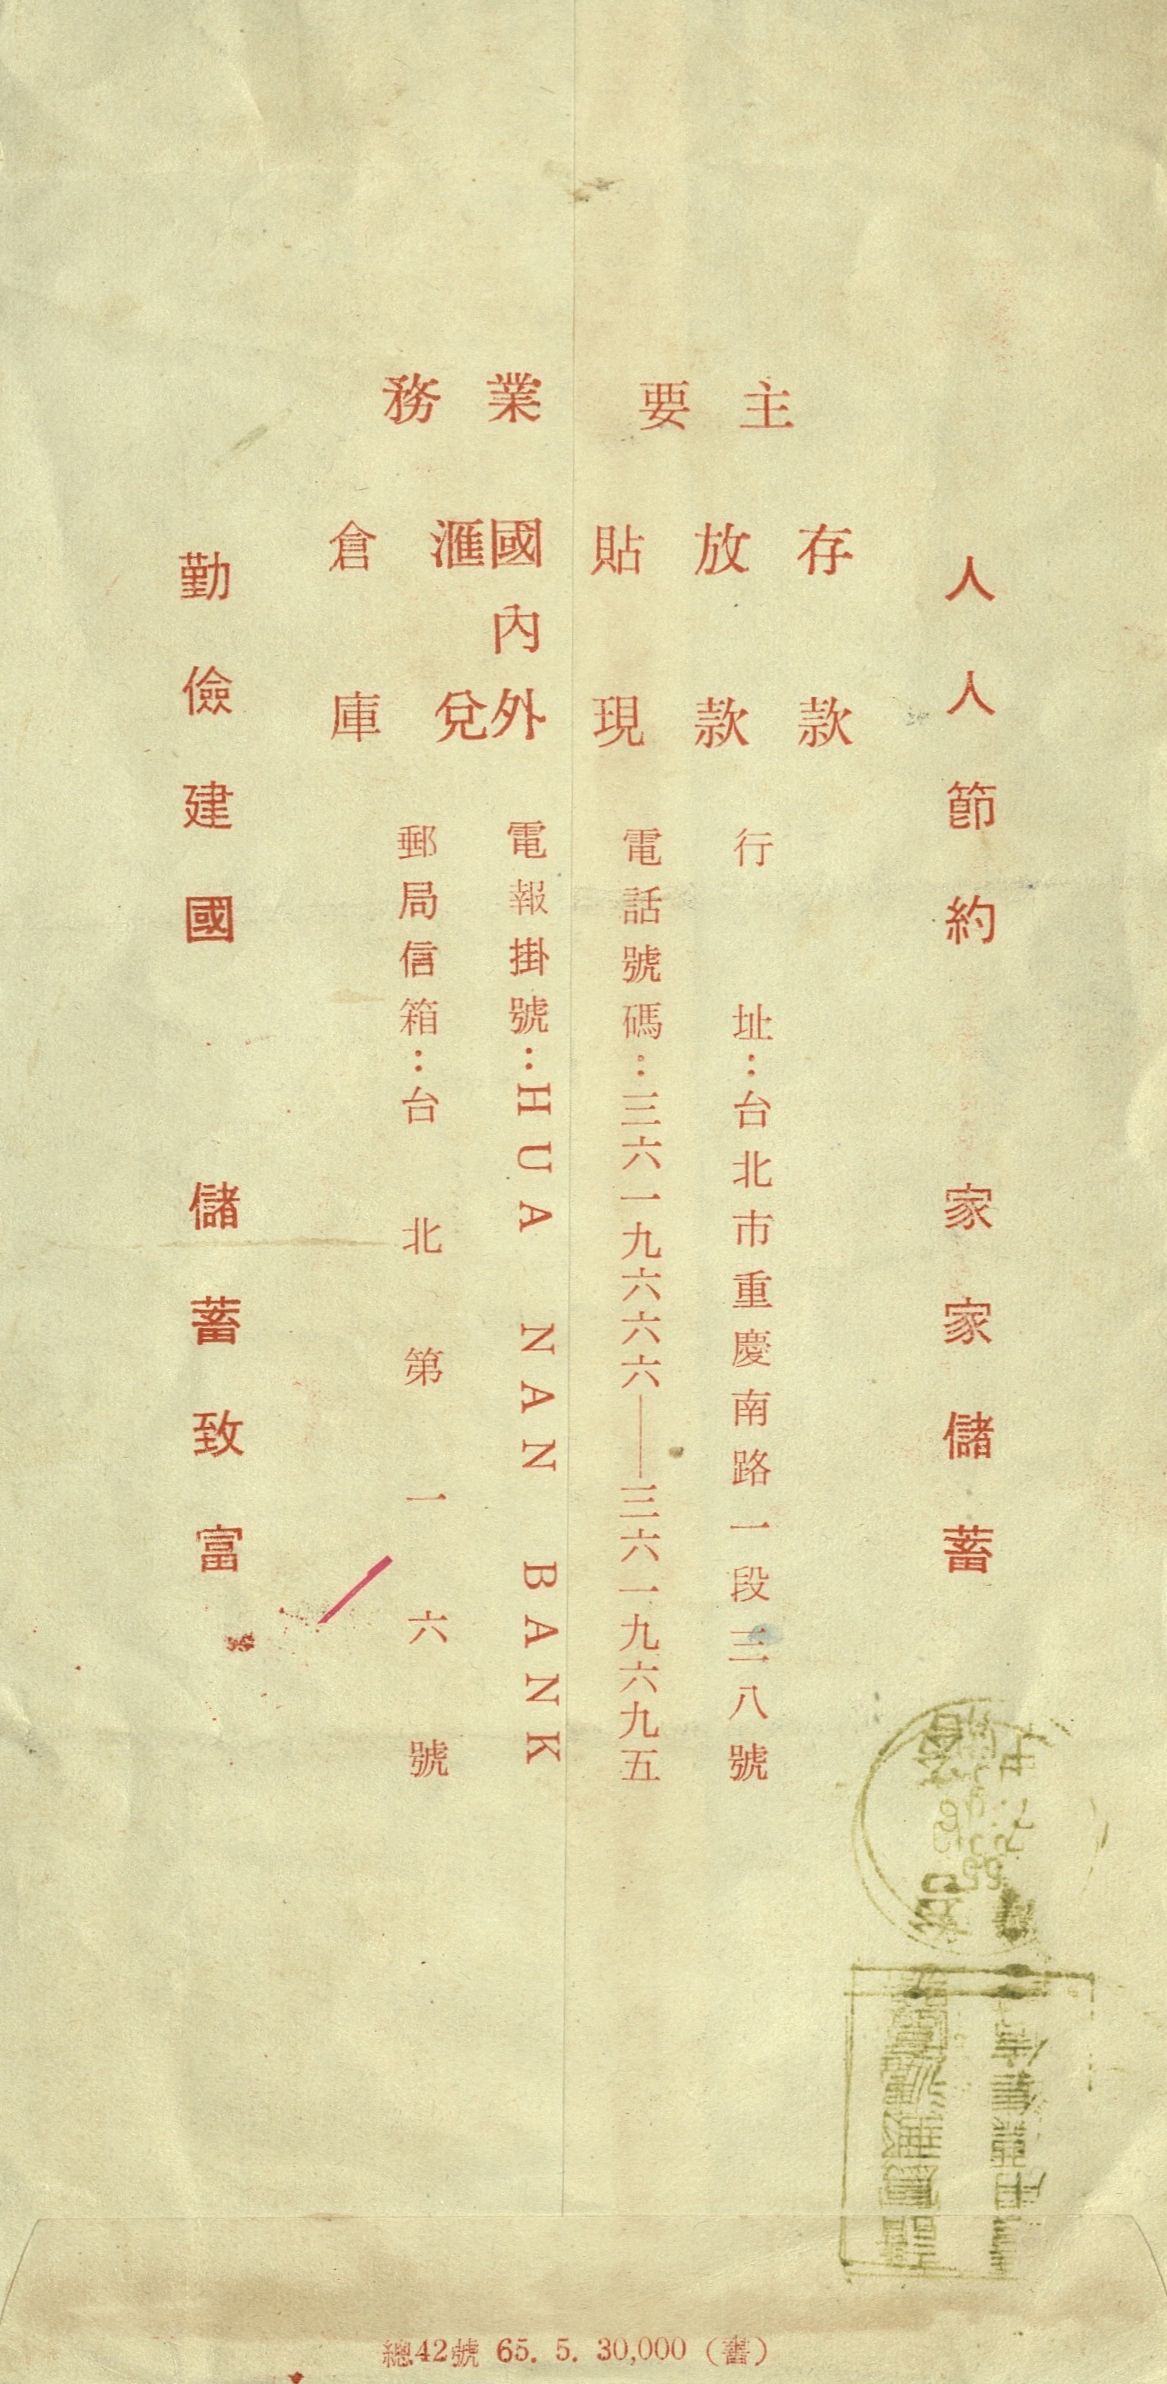 主要業務
人人節約 家家儲蓄
存款
放款
貼現
國內外
滙兌
倉庫
行址：台北市重慶南路一段三八號
電話號碼：三六一九六六六——三六一九六九五
電報掛號：HUA NAN BANK
郵局信箱：台北第一六號
勤儉建國 儲蓄致富
總42號 65. 5. 30,000（舊）